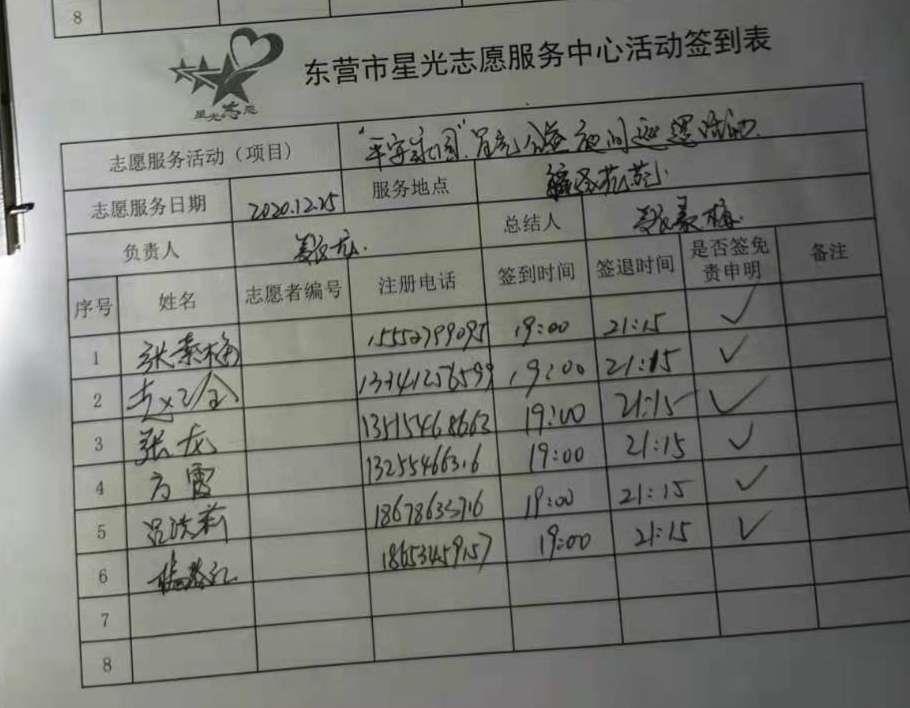 8
东营市星光志愿服务中心活动签到表
星光志愿
志愿服务活动（项目） "平安家园"星光公益夜间巡逻活动
志愿服务日期 2020.12.25 服务地点
负责人 总结人 张素梅
序号 姓名 志愿者编号 注册电话 签到时间 签退时间 是否签免责申明 备注
1 张素梅 15552799095 19:00 21:15 ✓
2 19:00 21:15 ✓
3 张龙 13515468663 19:00 21:15 ✓
4 方雷 13255466316 19:00 21:15 ✓
5 19:00 21:15 ✓
6 18653459157 19:00 21:15 ✓
7
8